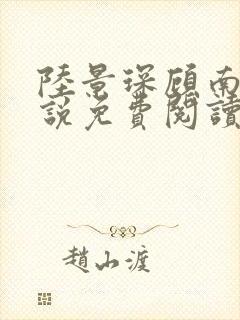 陸景琛顧南
說免費閱讀
趙山渡